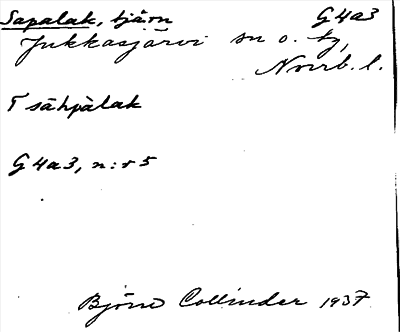 Sapalak, tjärn G4a3
Jukkasjärvi sn o. tg,
Norrb. l.
T sāhpàlak
G4a3, n:r 5
Björn Collinder 1937